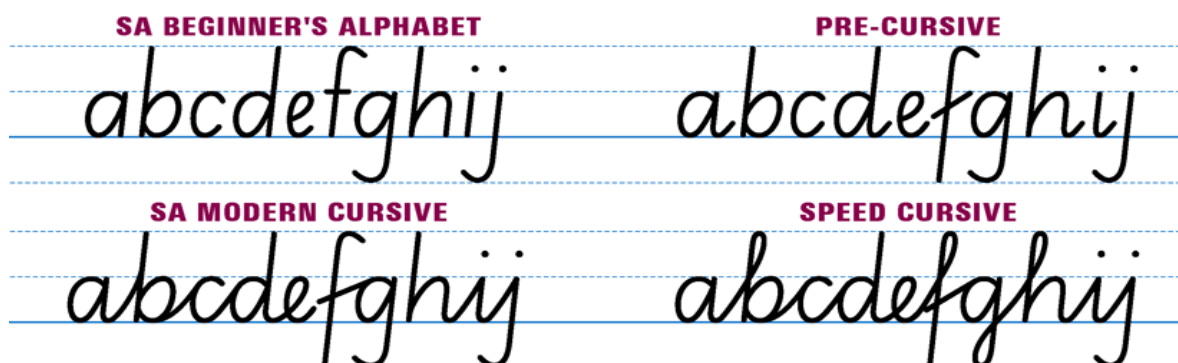 SA BEGINNER'S ALPHABET
abcdefghij
PRE-CURSIVE
abcdefghij
SA MODERN CURSIVE
abcdefghij
SPEED CURSIVE
abcdefghij